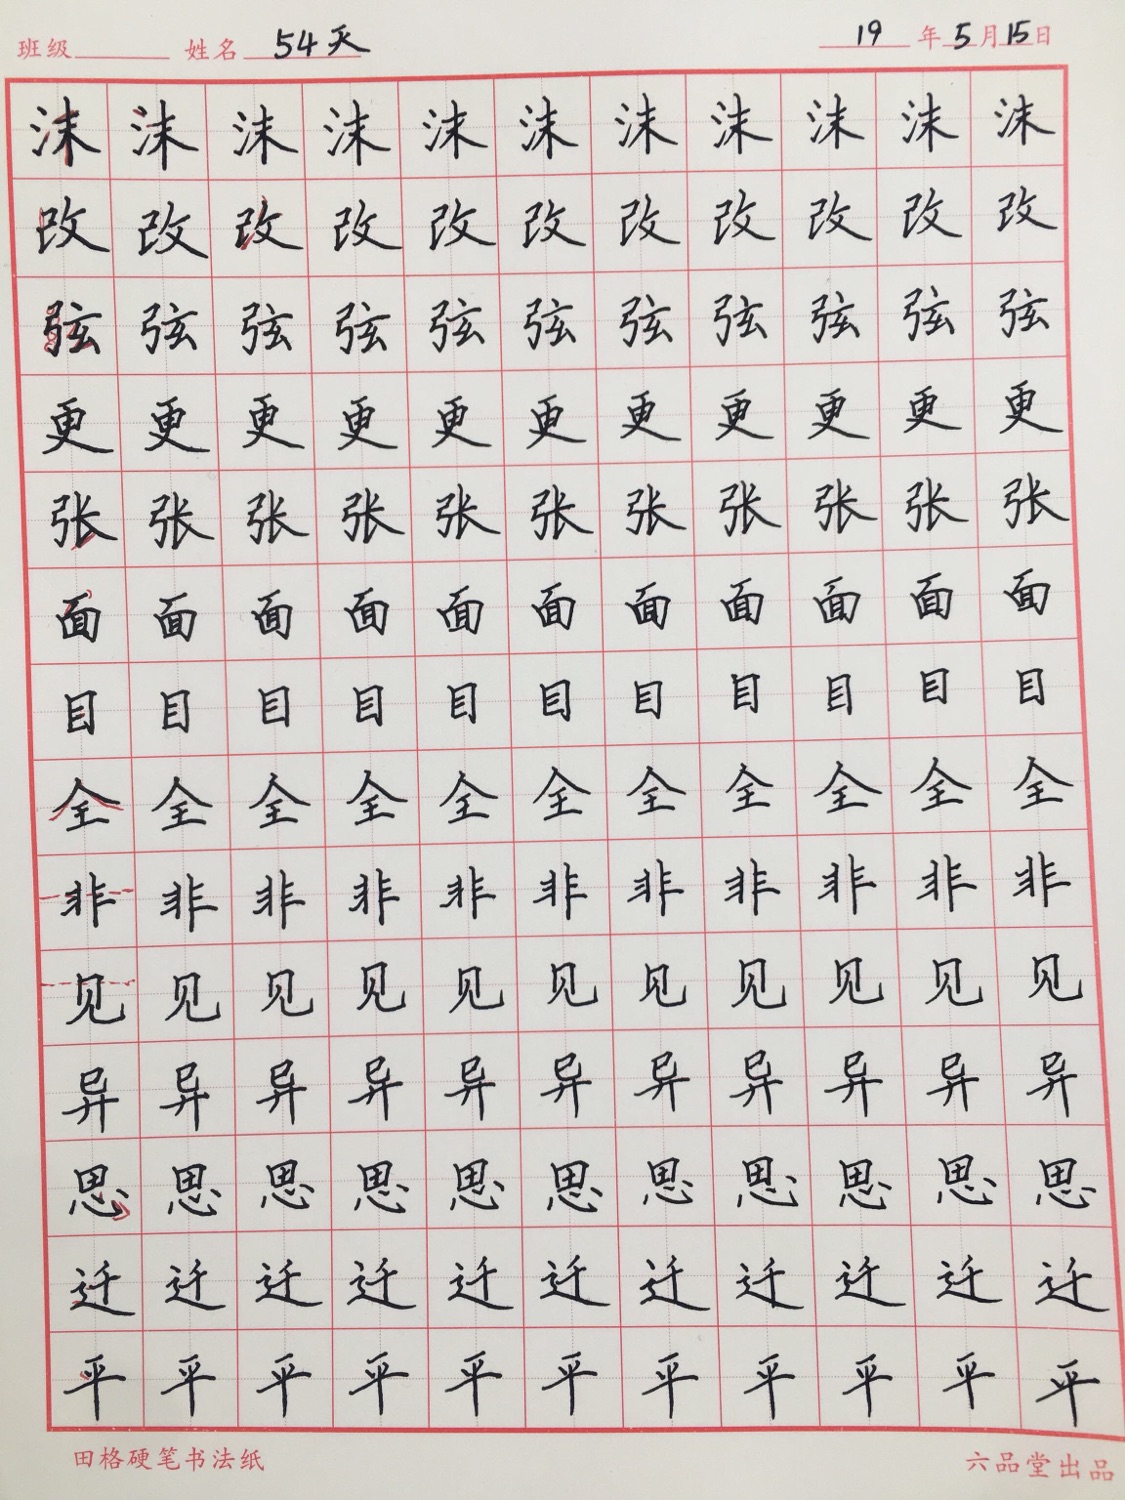 班级 姓名 54天 19年5月15日
沫沫沫沫沫沫沫沫沫沫沫
改改改改改改改改改改改
弦弦弦弦弦弦弦弦弦弦弦
更更更更更更更更更更更
张张张张张张张张张张张
面面面面面面面面面面面
目目目目目目目目目目目
全全全全全全全全全全全
非非非非非非非非非非非
见见见见见见见见见见见
异异异异异异异异异异异
思思思思思思思思思思思
迁迁迁迁迁迁迁迁迁迁迁
平平平平平平平平平平平
田格硬笔书法纸 六品堂出品